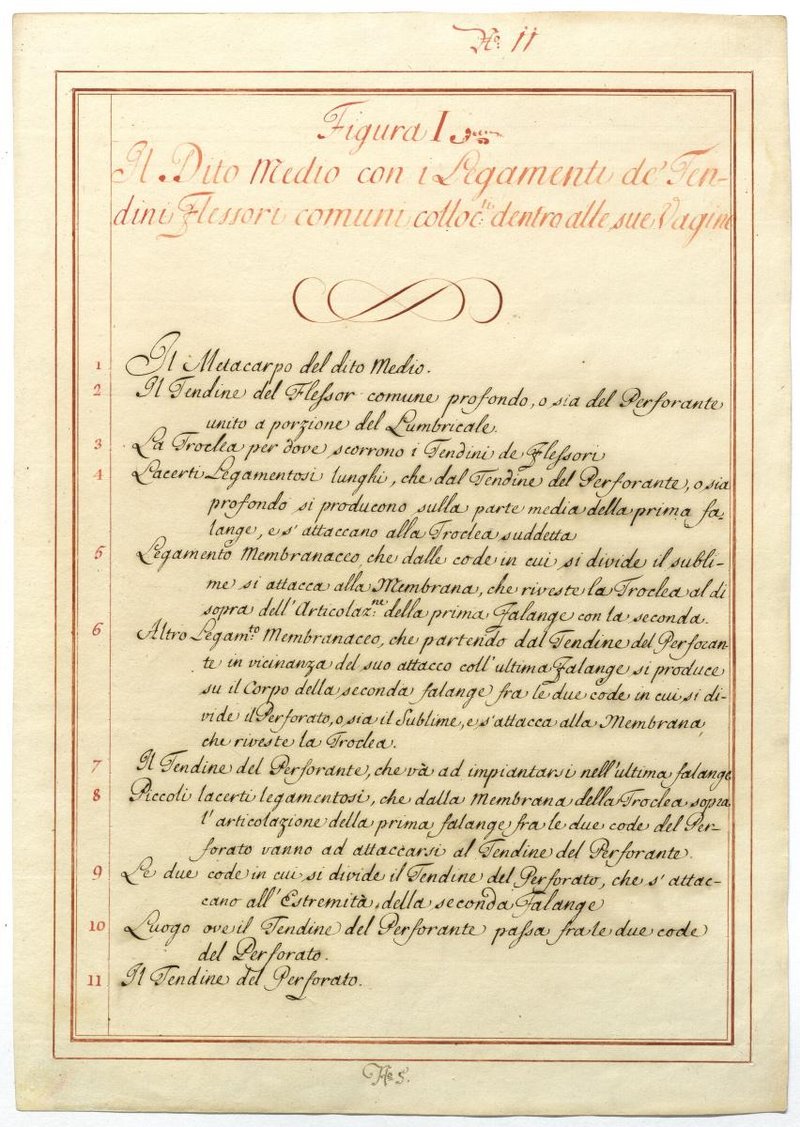 N.º 11
Figura I
Il Dito Medio con i Legamenti de' Ten-
dini Flessori comuni colloc.ti dentro alle sue Vagine
1 Il Metacarpo del dito Medio.
2 Il Tendine del Flessor comune profondo, o sia del Perforante
unito a porzione del Lumbricale.
3 La Troclea per dove scorrono i Tendini de Flessori
4 Lacerti Legamentosi lunghi, che dal Tendine del Perforante, o sia
profondo si producono sulla parte media della prima fa-
lange, e s'attaccano alla Troclea suddetta
5 Legamento Membranaceo, che dalle code in cui si divide il subli-
me si attacca alla Membrana, che riveste la Troclea al di
sopra dell'Articolaz.ne della prima Falange con la seconda.
6 Altro Legam.to Membranaceo, che partendo dal Tendine del Perforan-
te in vicinanza del suo attacco coll'ultima Falange si produce
su il Corpo della seconda falange fra le due code in cui si di-
vide il Perforato, o sia il Sublime, e s'attacca alla Membrana,
che riveste la Troclea.
7 Il Tendine del Perforante, che và ad impiantarsi nell'ultima falange
8 Piccoli lacerti legamentosi, che dalla Membrana della Troclea sopra
l'articolazione della prima falange fra le due code del Per-
forato vanno ad attaccarsi al Tendine del Perforante.
9 Le due code in cui si divide il Tendine del Perforato, che s'attac-
cano all'Estremità della seconda Falange
10 Luogo ove il Tendine del Perforante passa fra le due code
del Perforato.
11 Il Tendine del Perforato.
N.º 5.